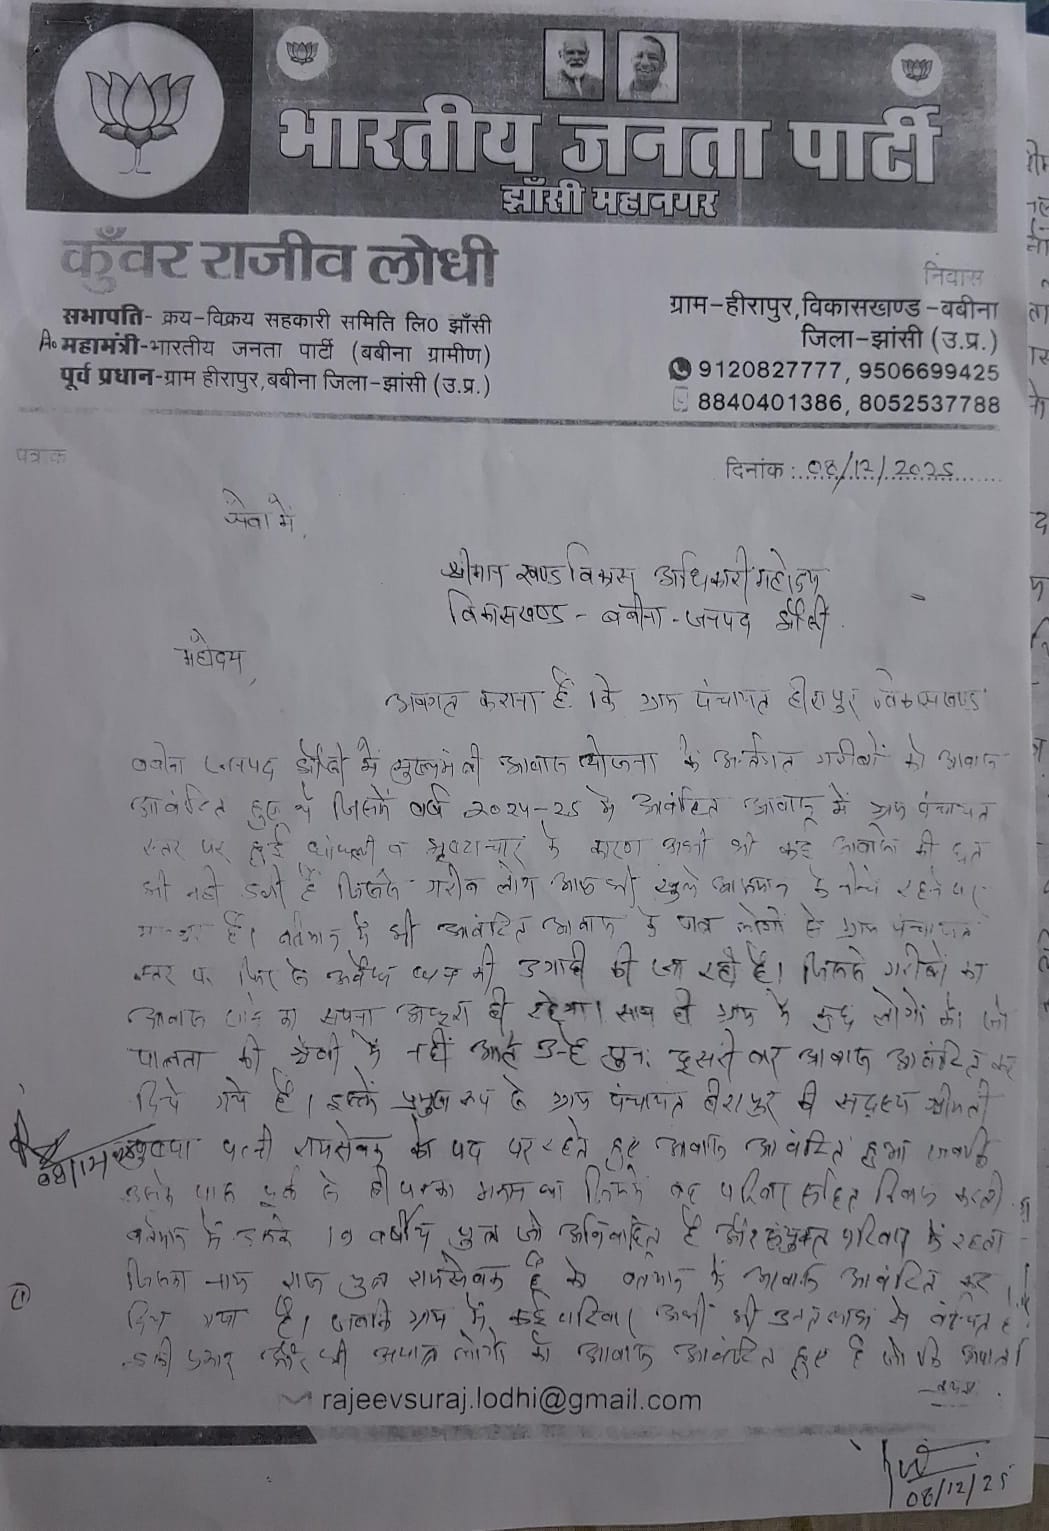 भारतीय जनता पार्टी
झाँसी महानगर
कुँवर राजीव लोधी
निवास
सभापति- क्रय-विक्रय सहकारी समिति लि० झाँसी
महामंत्री-भारतीय जनता पार्टी (बबीना ग्रामीण)
पूर्व प्रधान-ग्राम हीरापुर,बबीना जिला-झांसी (उ.प्र.)
ग्राम-हीरापुर,विकासखण्ड-बबीना
जिला-झांसी (उ.प्र.)
9120827777, 9506699425
8840401386, 8052537788
पत्रांक
दिनांक : 08/12/2025
सेवा में,
श्रीमान खण्ड विकास अधिकारी महोदय
विकासखण्ड - बबीना - जनपद झाँसी
महोदय,
अवगत कराना है कि ग्राम पंचायत हीरापुर विकासखण्ड
बबीना जनपद झाँसी में मुख्यमंत्री आवास योजना के अन्तर्गत गरीबों को आवास
आवंटित हुए थे जिसमें वर्ष 2024-25 में आवंटित आवास में ग्राम पंचायत
स्तर पर हुई धांधली व भ्रष्टाचार के कारण अभी भी कई आवासों की छत
भी नहीं डली है जिससे गरीब लोग आज भी खुले आसमान के नीचे रहने पर
मजबूर हैं। वर्तमान में भी आवंटित आवास के पात्र लोगों से ग्राम पंचायत
स्तर पर फिर से अवैध धन की उगाही की जा रही है। जिससे गरीबों का
आवास पाने का सपना अधूरा ही रहेगा। साथ ही ग्राम के कुछ लोगों को जो
पात्रता की श्रेणी में नहीं आते उन्हें पुनः दूसरी बार आवास आवंटित कर
दिये गये हैं। इसमें प्रमुख रूप से ग्राम पंचायत हीरापुर की सदस्य श्रीमती
पत्नी रामसेवक को पद पर रहते हुए आवास आवंटित हुआ जबकि
उसके पास पूर्व से ही पक्का मकान था जिसमें वह परिवार सहित निवास करती
वर्तमान में उसके 19 वर्षीय पुत्र जो अविवाहित है और संयुक्त परिवार में रहता
जिसका नाम राज पुत्र रामसेवक है को वर्तमान में आवास आवंटित कर
दिया गया है। जबकि ग्राम में कई परिवार अभी भी उक्त लाभ से वंचित है
इसी प्रकार और भी अपात्र लोगों को आवास आवंटित हुए है जो कि अपात्र
rajeevsuraj.lodhi@gmail.com
08/12/25